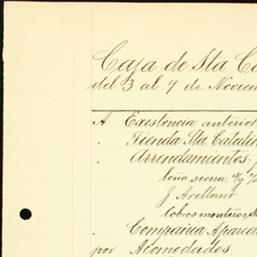 Caja de Sta Ca
del 3 al 9 de Noviem
A Existencia anterior
" Tienda Sta Catalin
" Arrendamientos
leña sierra
J Arellano
Cobros monteros
" Compañia Aparce
por Acomodados